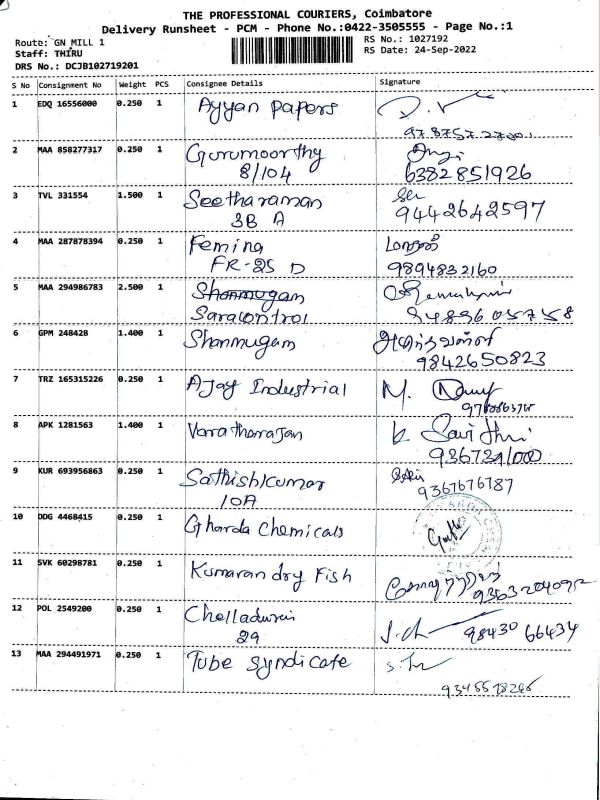 THE PROFESSIONAL COURIERS, Coimbatore
Delivery Runsheet - PCM - Phone No.:0422-3505555 - Page No.:1
Route: GN MILL 1
RS No.: 1027192
Staff: THIRU
RS Date: 24-Sep-2022
DRS No.: DCJB102719201
S No Consignment No Weight PCS Consignee Details Signature
1 EDQ 16556000 0.250 1 Ayyan Papers
2 MAA 858277317 0.250 1 Gurumoorthy
8/104 6382851926
3 TVL 331554 1.500 1 Seetharaman
3B A 9442642597
4 MAA 287878394 0.250 1 Femina
FR-25 D 9894832160
5 MAA 294986783 2.500 1 Shanmugam
Saracontrol 9489605758
6 GPM 248428 1.400 1 Shanmugam
9842650823
7 TRZ 165315226 0.250 1 Ajay Industrial M.
8 APK 1281563 1.400 1 Varatharajan K Savithri
9 KUR 693956863 0.250 1 Sathishkumar
10A 9367676787
10 DDG 4468415 0.250 1 Gharda Chemicals
11 SVK 60298781 0.250 1 Kumaran dry Fish
9363204092
12 POL 2549200 0.250 1 Chelladurai
29 98430 66434
13 MAA 294491971 0.250 1 Tube Syndicate